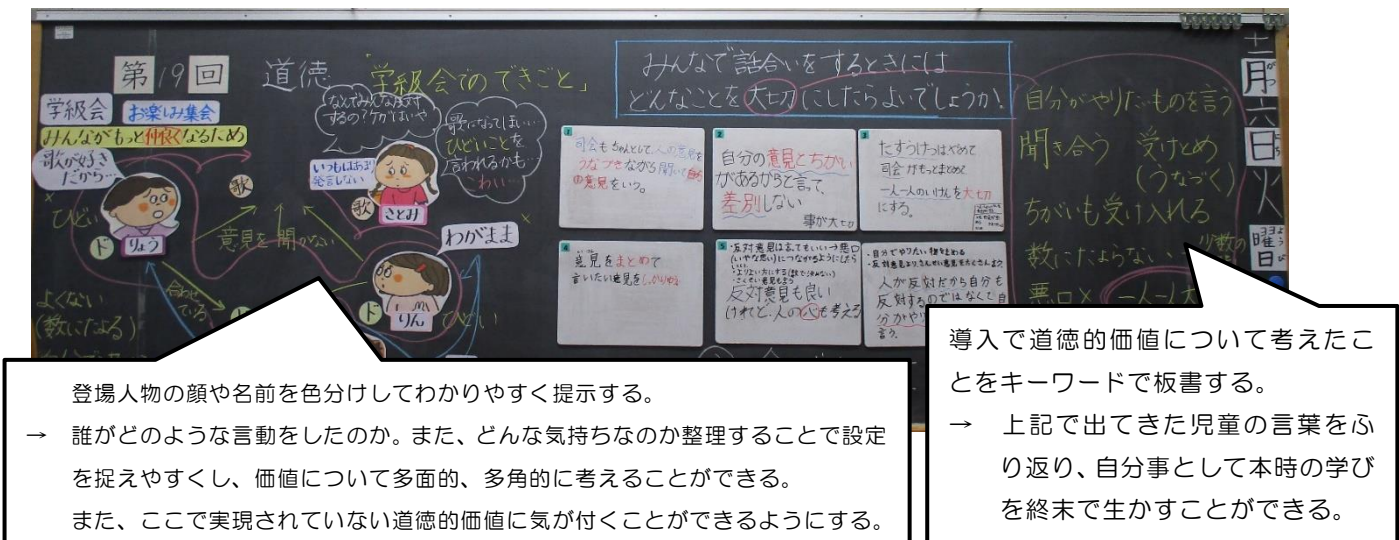 第19回 道徳 「学級会でのできごと」
学級会 お楽しみ集会
みんながもっと仲良くなるため
歌が好き
だから…
ひどい
ド
りょう
歌
意見を聞かない
合わせ
ている
よくない
(数にたよる)
なんでみんな反対
するの?ケがはいや
歌になってほしい…
ひどいことを
言われるかも…
こわい…
いつもはあまり
発言しない
歌
さとみ
わがまま
ド
りん
ひどい
みんなで話合いをするときには
どんなことを大切にしたらよいでしょうか。
1
司会もちゃんとして、人の意見を
うなづきながら聞いて自分
の意見をいう。
2
自分の意見とちがい
があるからと言って、
差別しない
事が大切
3
たすうけつはやめて
司会がもっとまとめて
一人一人のいけんを大切
にする。
4
意見をまとめて
言いたい意見をしっかりゆう
5
・反対意見は言てもいい→悪口
(いやな思い)につながらようにしたら
反対意見も良い
けれど、人の心も考える
人が反対だから自分も
反対するのではなくて自
分がやり
言う。
自分がやりたいものを言う
聞き合う 受けとめ
(うなづく)
ちがいも受け入れる
数にたよらない… 少数の
悪口× 一人一人大
十二月六日火曜日
がつ
にち
よう
び
登場人物の顔や名前を色分けしてわかりやすく提示する。
→ 誰がどのような言動をしたのか。また、どんな気持ちなのか整理することで設定
を捉えやすくし、価値について多面的、多角的に考えることができる。
また、ここで実現されていない道徳的価値に気が付くことができるようにする。
導入で道徳的価値について考えたこ
とをキーワードで板書する。
→ 上記で出てきた児童の言葉をふ
り返り、自分事として本時の学び
を終末で生かすことができる。